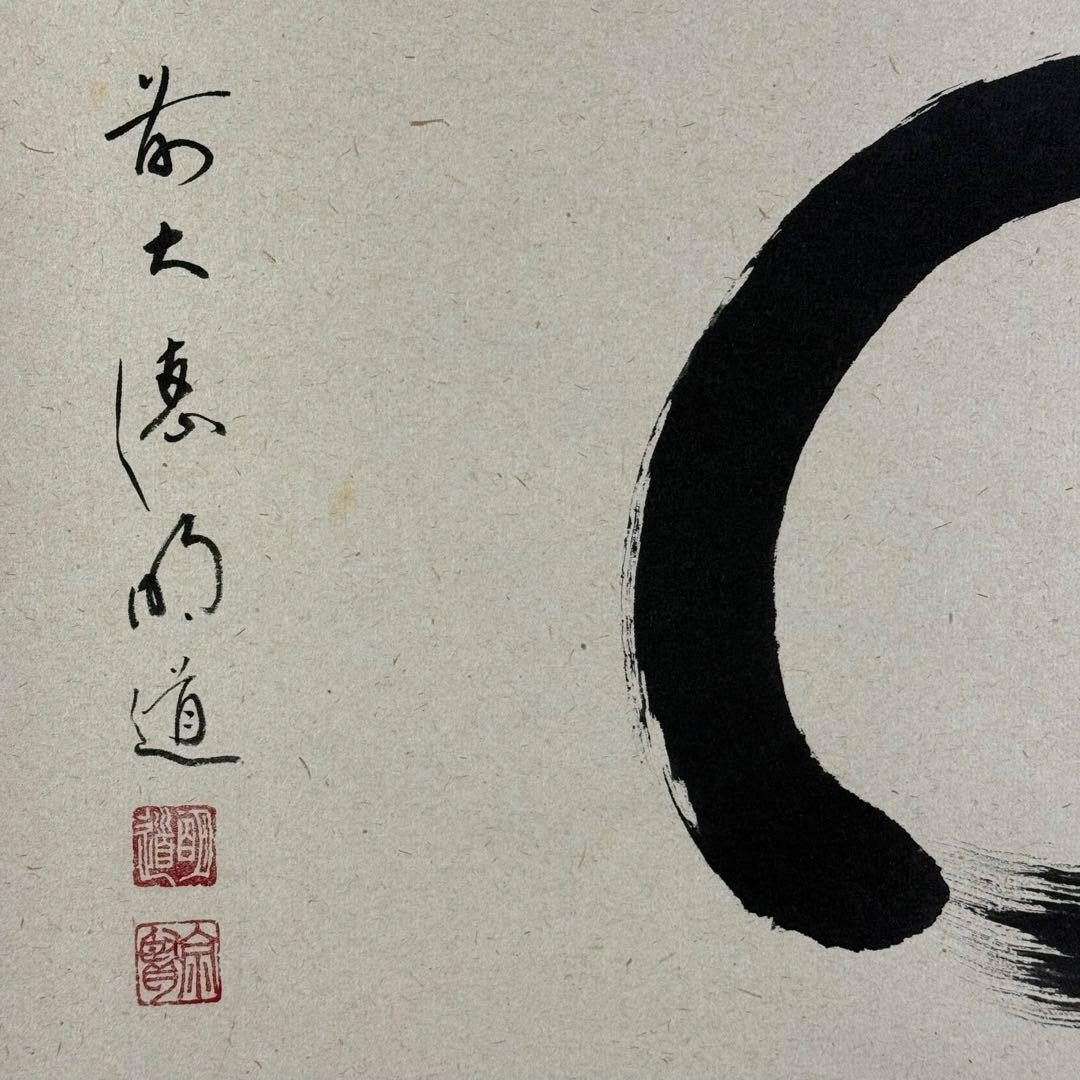 前大徳明道
明道
宗賢